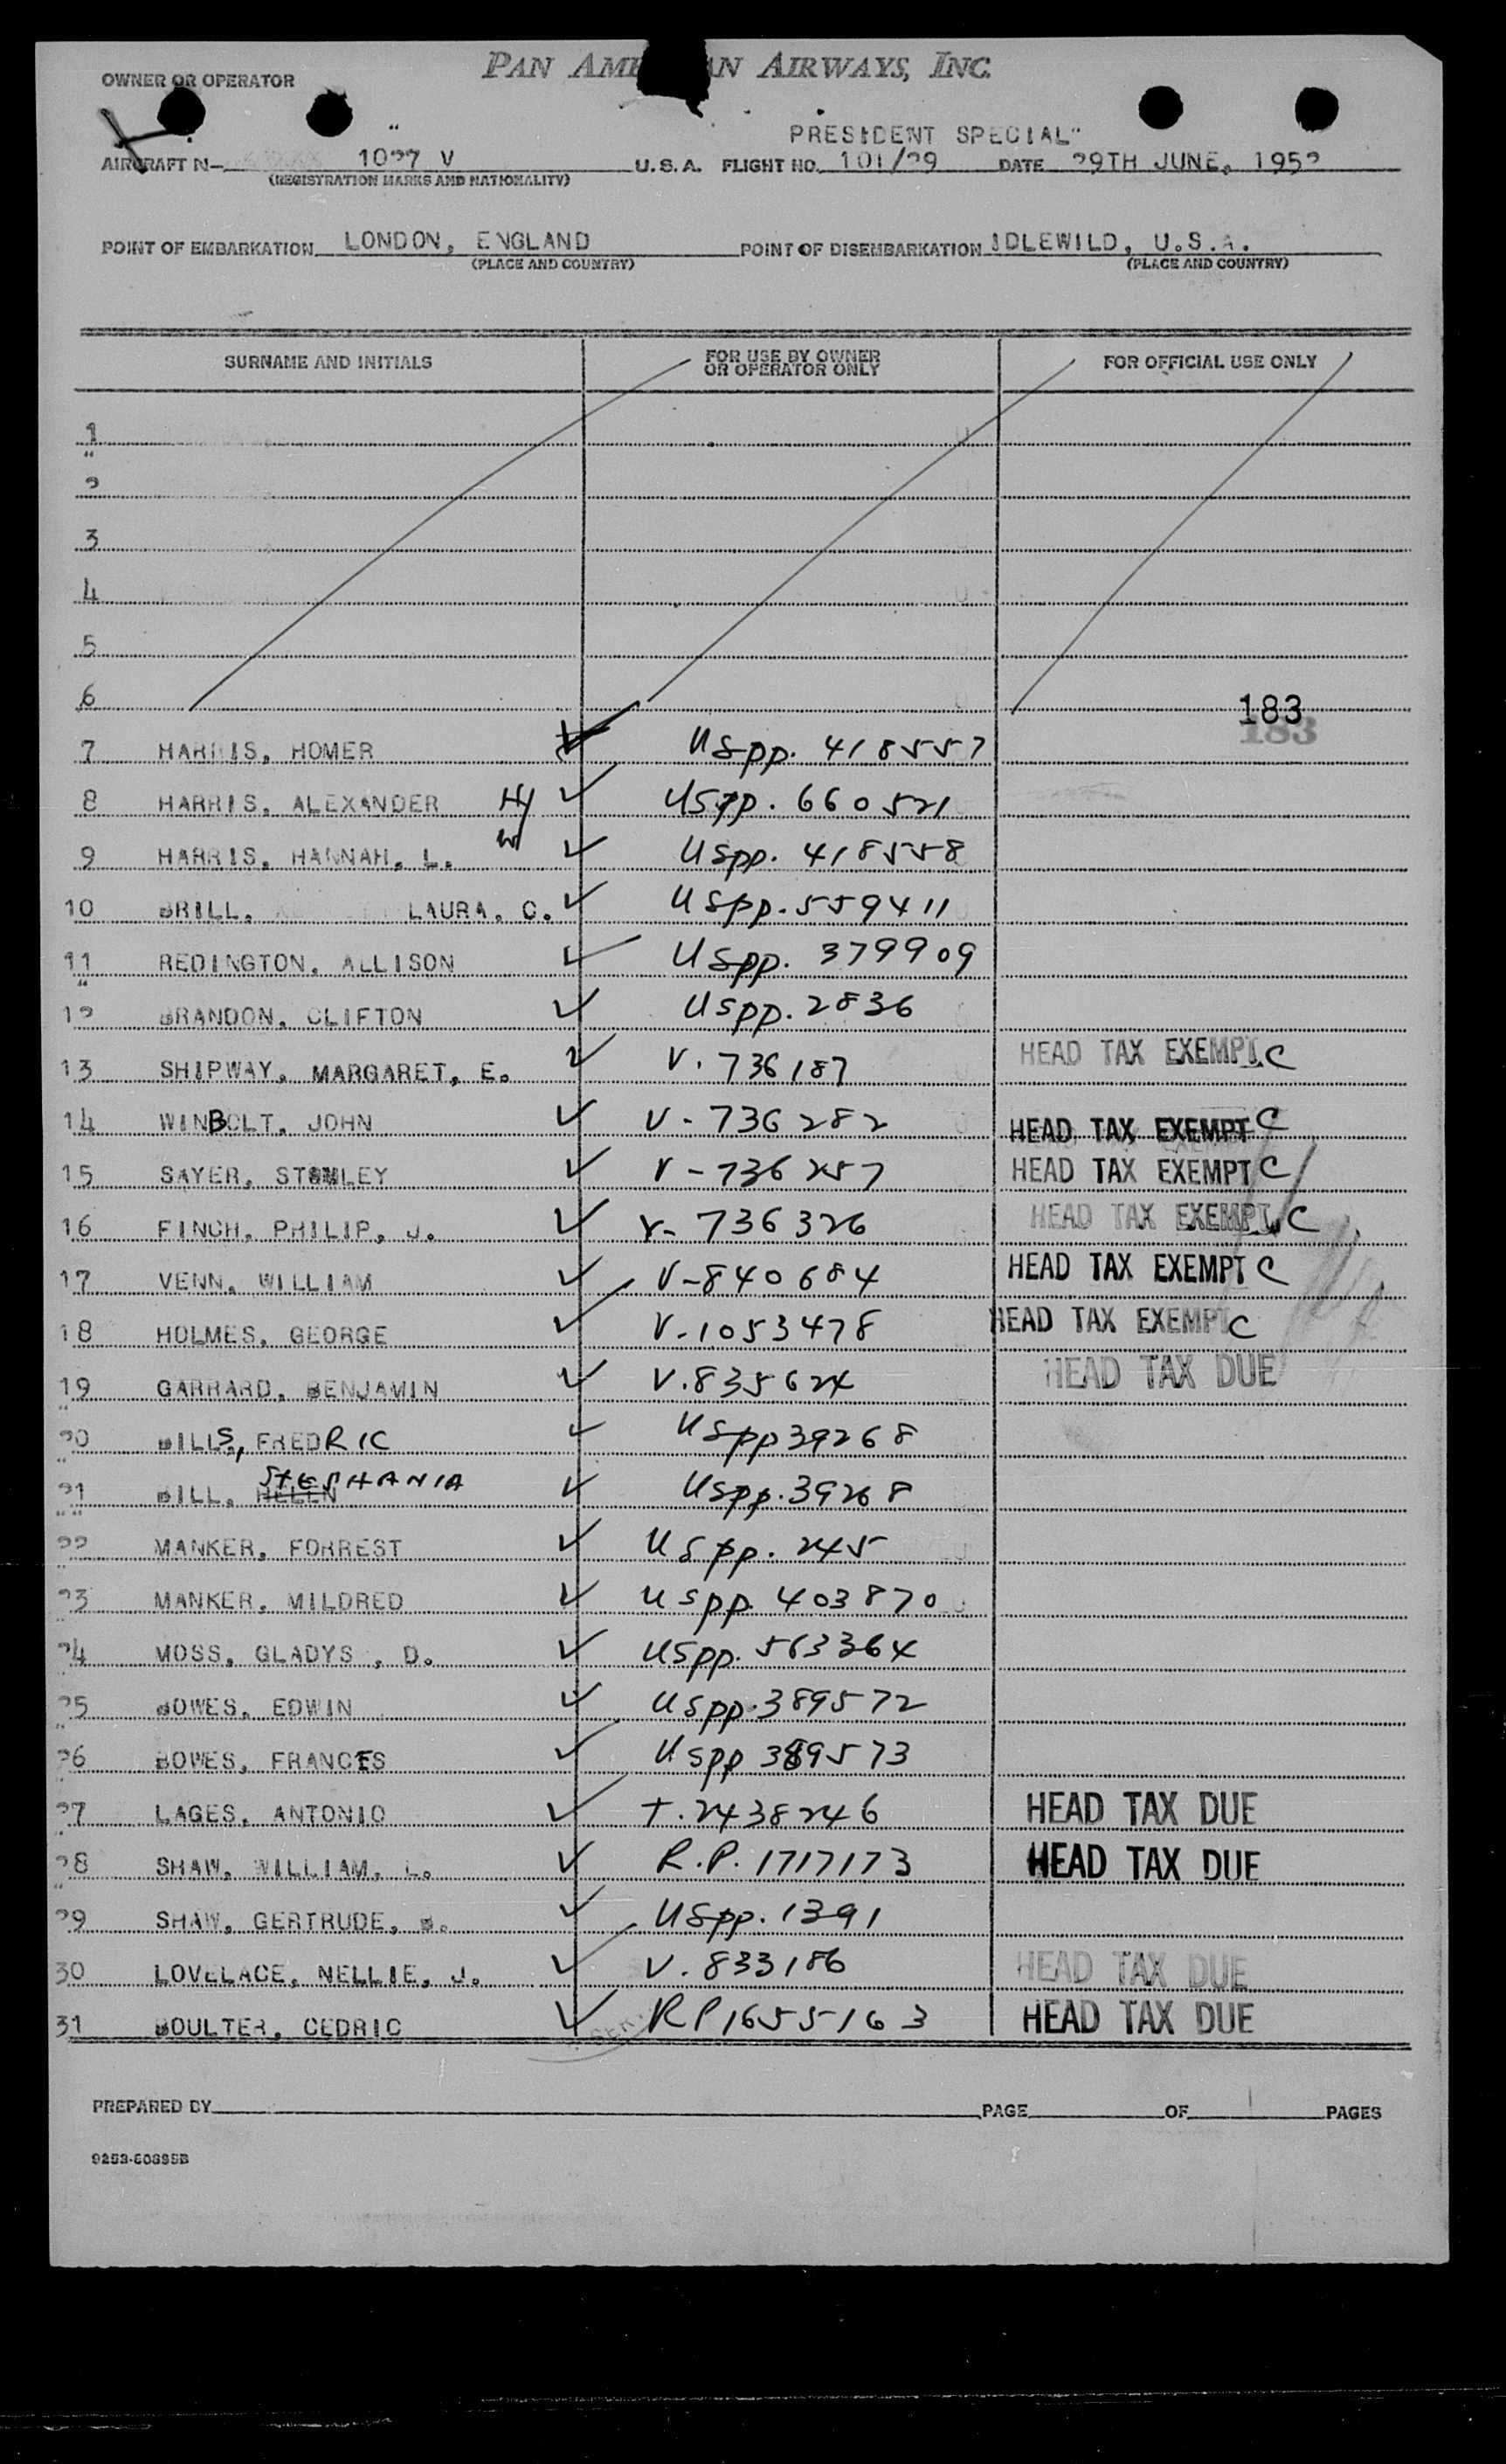 PAN AMERICAN AIRWAYS, INC.
OWNER OR OPERATOR
"PRESIDENT SPECIAL"
AIRCRAFT N- 1027 V U.S.A. FLIGHT NO. 101/29 DATE 29TH JUNE, 1952
(REGISTRATION MARKS AND NATIONALITY)
POINT OF EMBARKATION LONDON, ENGLAND POINT OF DISEMBARKATION IDLEWILD, U.S.A.
(PLACE AND COUNTRY) (PLACE AND COUNTRY)
SURNAME AND INITIALS FOR USE BY OWNER OR OPERATOR ONLY FOR OFFICIAL USE ONLY
1
2
3
4
5
6
183
183
7 HARRIS, HOMER USpp. 418557
8 HARRIS, ALEXANDER H/ USpp. 660521
9 HARRIS, HANNAH, L. W USpp. 418558
10 BRILL, LAURA, C. USpp. 559411
11 REDINGTON, ALLISON USpp. 379909
12 BRANDON, CLIFTON USpp. 2836
13 SHIPWAY, MARGARET, E. V. 736187 HEAD TAX EXEMPT C
14 WINBOLT, JOHN V - 736282 HEAD TAX EXEMPT C
15 SAYER, STANLEY V - 736257 HEAD TAX EXEMPT C
16 FINCH, PHILIP, J. V - 736326 HEAD TAX EXEMPT C
17 VENN, WILLIAM V - 840684 HEAD TAX EXEMPT C
18 HOLMES, GEORGE V - 1053478 HEAD TAX EXEMPT C
19 GARRARD, BENJAMIN V. 835624 HEAD TAX DUE
20 BILLS, FREDRIC USpp 39268
21 BILL, HELEN STEPHANIA USpp. 39268
22 MANKER, FORREST USpp. 245
23 MANKER, MILDRED USpp. 403870
24 MOSS, GLADYS , D. USpp. 563364
25 BOWES, EDWIN USpp. 389572
26 BOWES, FRANCES USpp 389573
27 LAGES, ANTONIO T. 2438246 HEAD TAX DUE
28 SHAW, WILLIAM, L. R.P. 1717173 HEAD TAX DUE
29 SHAW, GERTRUDE, B. USpp. 1391
30 LOVELACE, NELLIE, J. V. 833186 HEAD TAX DUE
31 BOULTER, CEDRIC RP 1655163 HEAD TAX DUE
PREPARED BY PAGE OF PAGES
9253-60395B